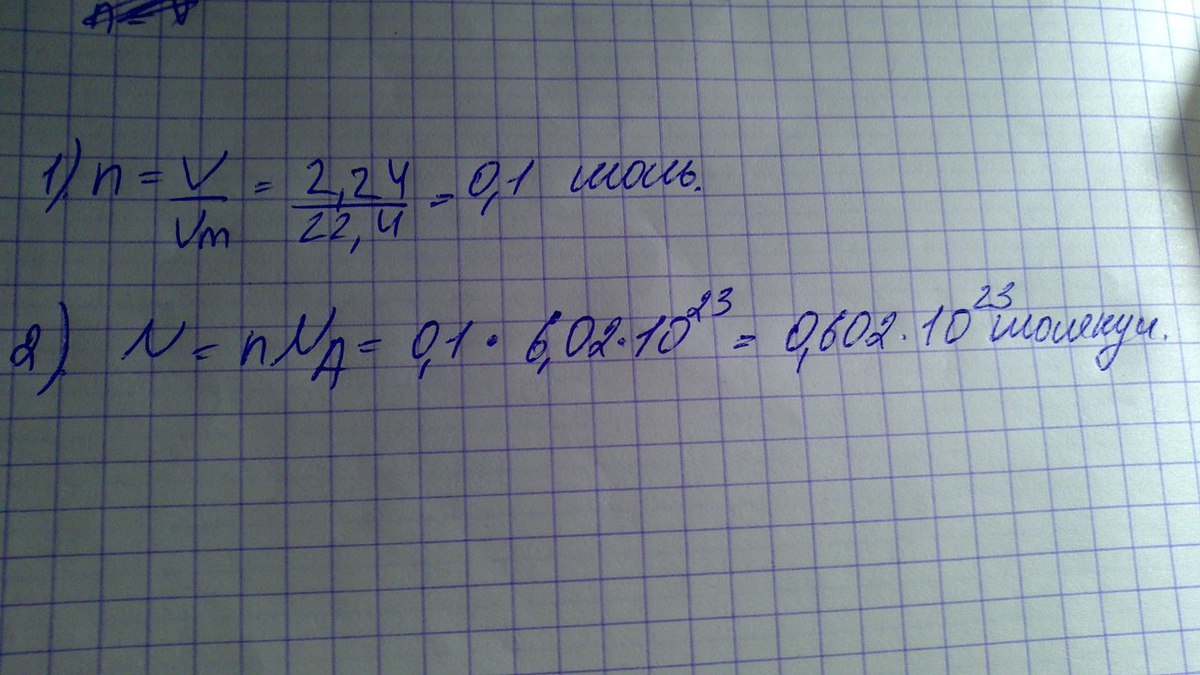 1). n = V/Vm = 2,24/22,4 = 0,1 моль.
2). N = nNA = 0,1 · 6,02 · 10²³ = 0,602 · 10²³ молекул.